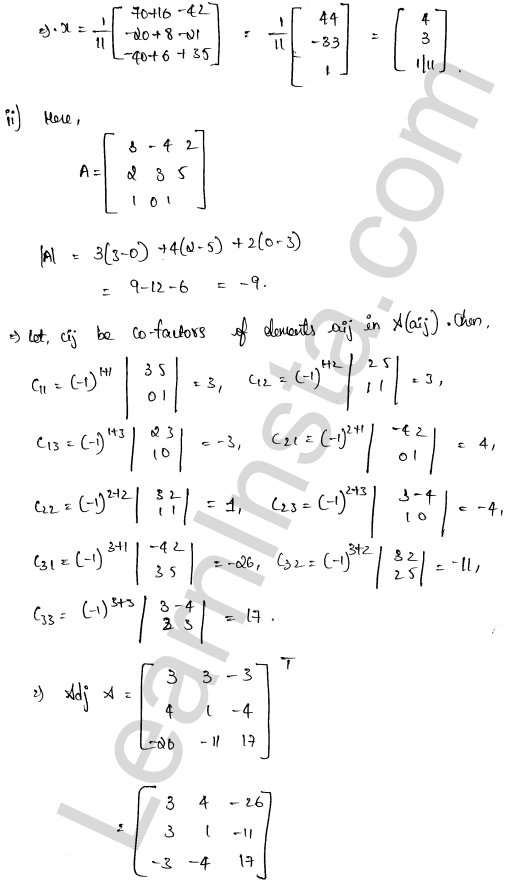 ⇒ x = 1/11 [ 70+16 -42
-20+8-21
-40+6+35 ] = 1/11 [ 44
-33
1 ] = [ 4
3
1/11 ].
ii) Here,
A = [ 3 -4 2
2 3 5
1 0 1 ]
|A| = 3(3-0) +4(2-5) +2(0-3)
= 9-12-6 = -9.
⇒ Let, cij be co-factors of elements aij in A(aij). Then,
C11 = (-1)^1+1 | 3 5
0 1 | = 3, C12 = (-1)^1+2 | 2 5
1 1 | = 3,
C13 = (-1)^1+3 | 2 3
1 0 | = -3, C21 = (-1)^2+1 | -4 2
0 1 | = 4,
C22 = (-1)^2+2 | 3 2
1 1 | = 1, C23 = (-1)^2+3 | 3 -4
1 0 | = -4,
C31 = (-1)^3+1 | -4 2
3 5 | = -26, C32 = (-1)^3+2 | 3 2
2 5 | = -11,
C33 = (-1)^3+3 | 3 -4
2 3 | = 17.
⇒ Adj A = [ 3 3 -3
4 1 -4
-26 -11 17 ]^T
= [ 3 4 -26
3 1 -11
-3 -4 17 ]
LearnInsta.com